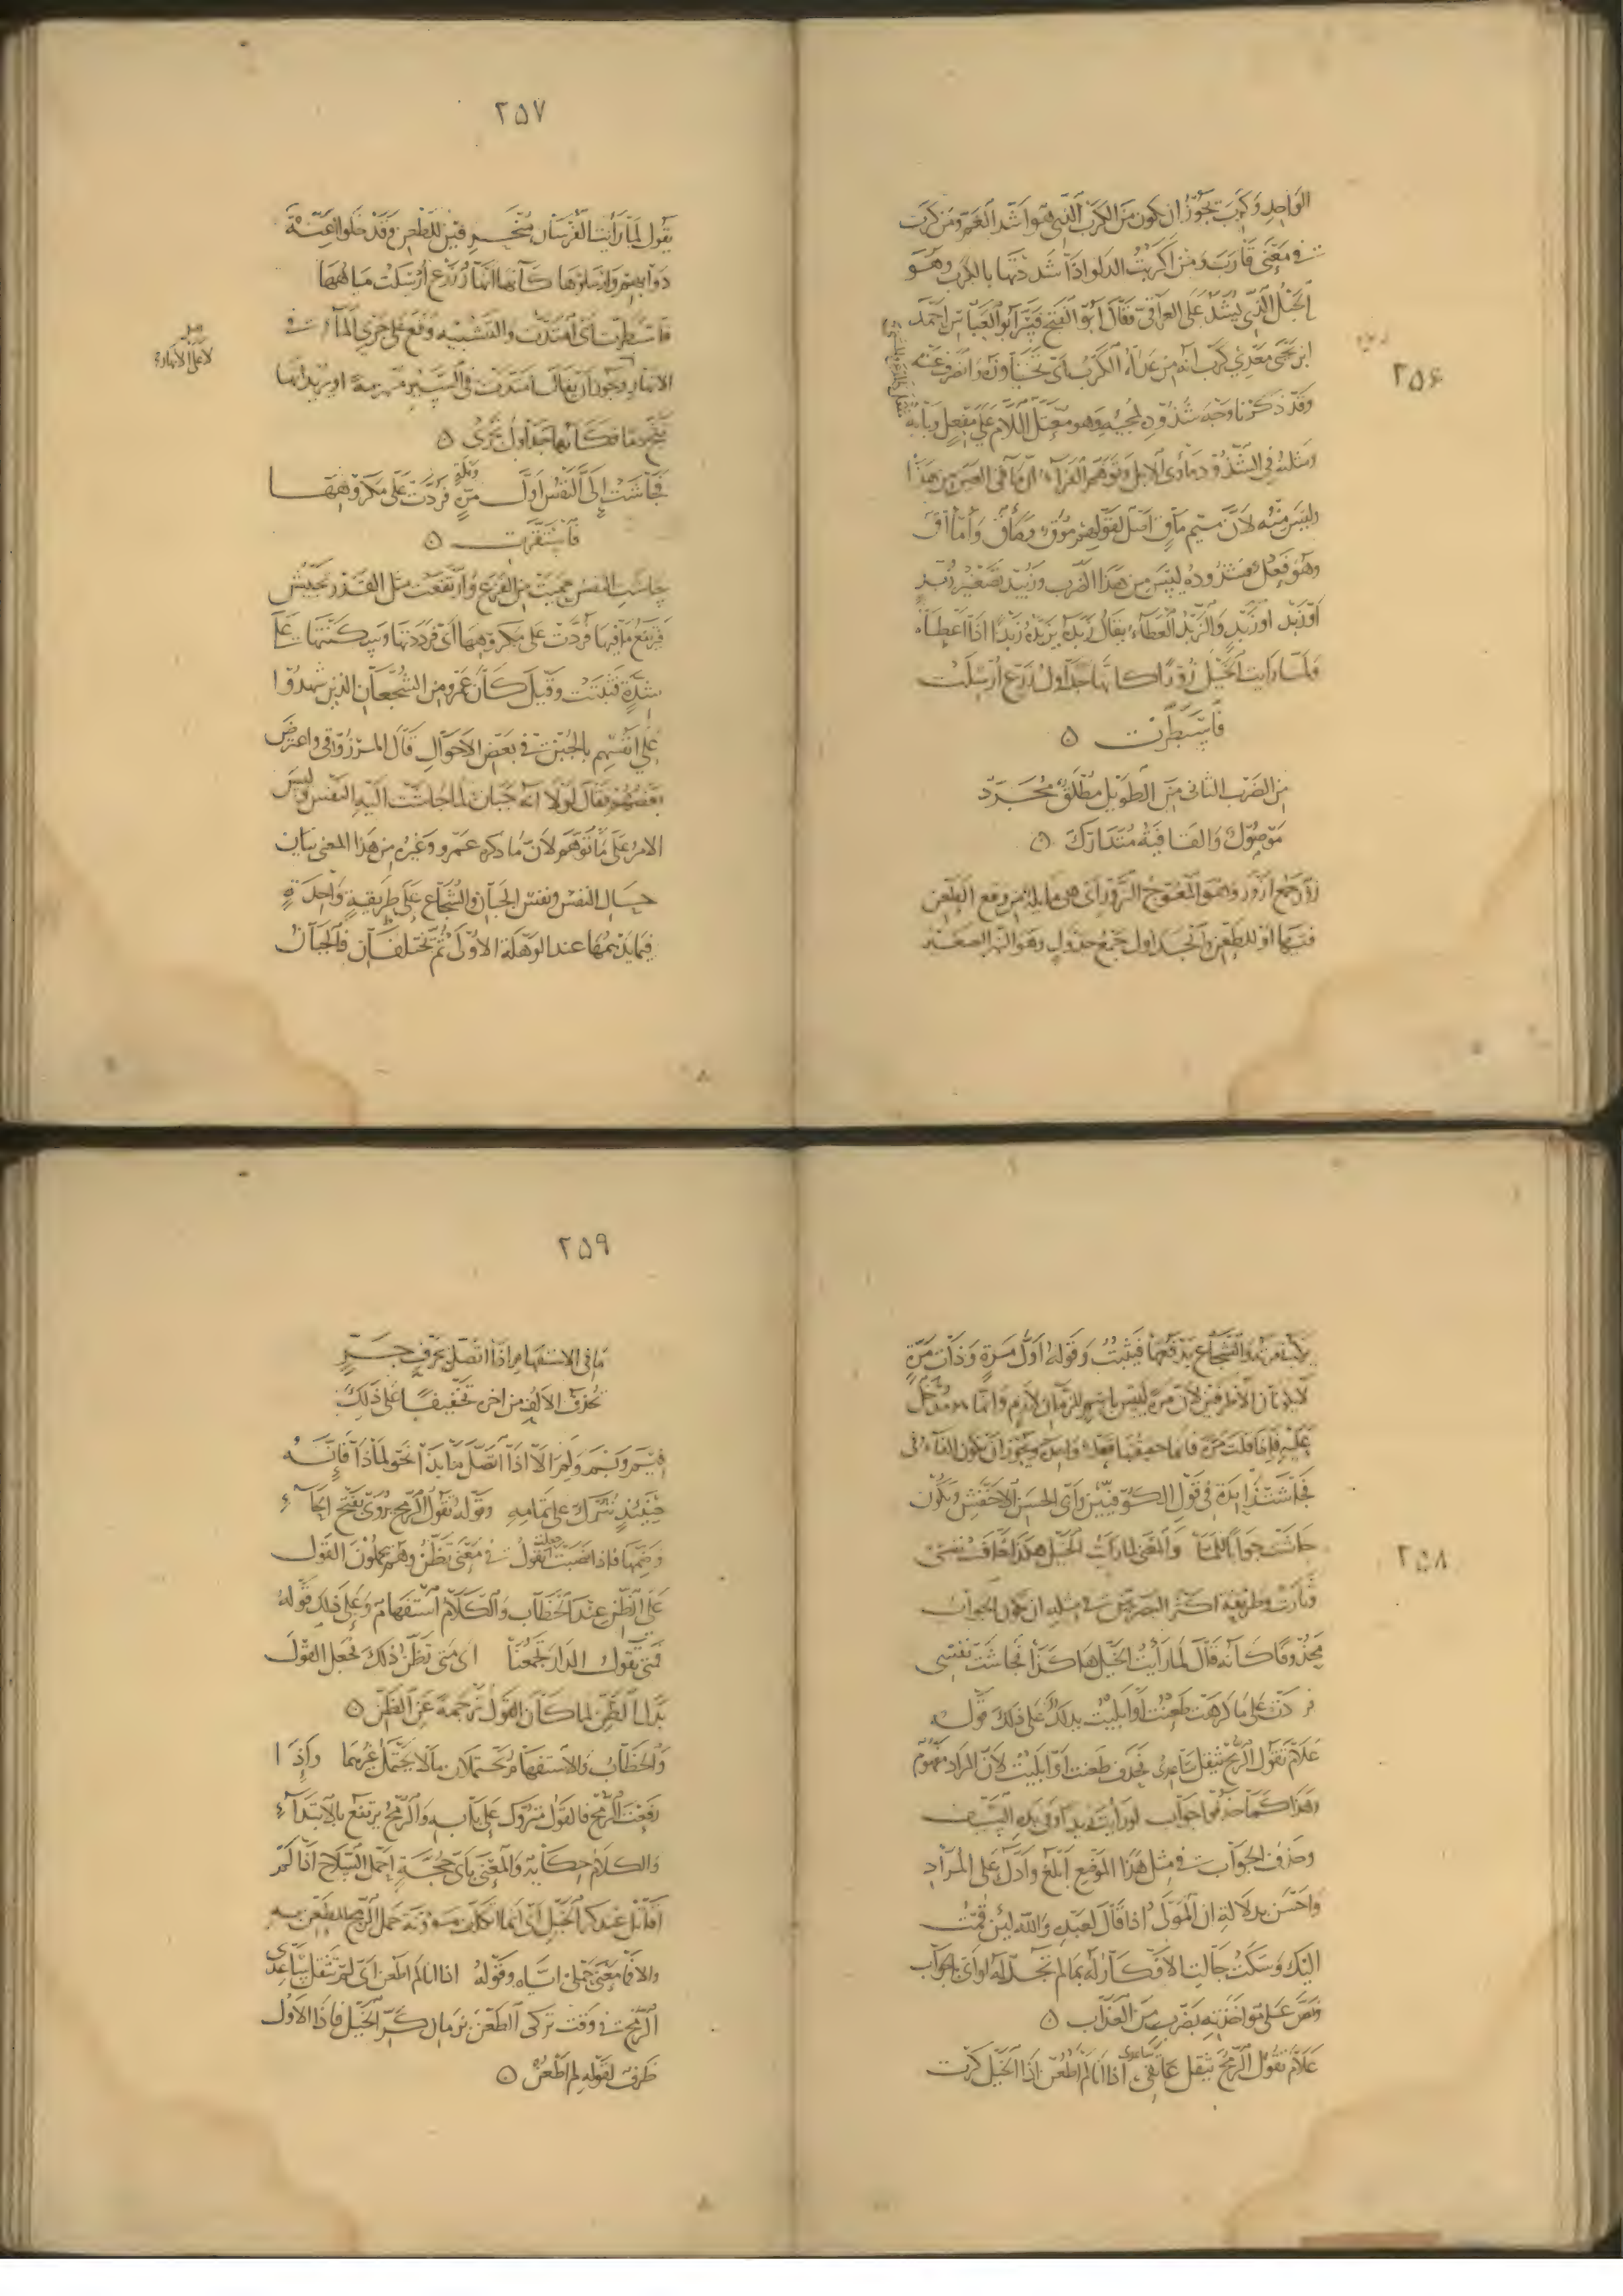 ٢٥٦
الواحد وكرب يجوز ان يكون من الكرب الذي هو اشد الغم ومن كرب
في معنى قارب ومن اكربت الدلو اذا شددتها بالكرب وهو
الحبل الذي يشد على العراقي فقال ابو الفتح فسر ابو العباس احمد
ابن يحيى معدي كرب انه من عداه الكرب اي تجاوزه وانصرف عنه
وقد ذكرنا وجه شذوذ مجيه وهو معتل اللام على مفعل وبابه
ومثله في الشذوذ مأوى الابل وتوهم الفراء ان مأقي العين من هذا
وليس منه لان ميم مأق اصل لقولهم موق ومأق وأمآق
وهو فعل فشذوذه ليس من هذا الضرب وزبيد تصغير زبد
او زبد والزبد العطاء يقال زبده يزبده زبدا اذا اعطاه
ولما رايت الخيل زورا كانها جداول زرع ارسلت
فاسبطرت ه
من الضرب الثاني من الطويل مطلق مجرد
موصول والقافية متدارك ه
زور جمع ازور وهو المعوج الزور اي هي مايلة من وقع الطعن
فيها او للطعن والجداول جمع جدول وهو النهر الصغير
٢٥٧
يقول لما رأيت الفرسان منحرفين للطعن وقد خلوا اعنة
دوابهم وارسلوها كأنها انهار زرع ارسلت مياهها
فاسبطرت اي امتدت والتشبيه وقع على جري الماء في
الانهار ويجوز ان يقال امتدت في السير منهزمة او يريد انها
فكأنها جداول تجري ه
فجاشت الى النفس اول مرة فردت على مكروهها
فاستقرت ه
جاشت النفس حميت من الفزع وارتفعت مثل القدر تجيش
فيرتفع ما فيها فردت على مكروهها اي فرددتها وسكنتها على
شدة فثبتت وقيل كان عمرو من الشجعان الذين شهدوا
على انفسهم بالجبن في بعض الاحوال قال المرزوقي واعترض
بعضهم فقال لولا انه جبان لما جاشت اليه النفس وليس
الامر على ما توهم لان ما ذكره عمرو وغيره من هذا المعنى بيان
حال النفس ونفس الجبان والشجاع على طريقة واحدة
فيما يدهمها عند الوهلة الاولى ثم يختلفان فالجبان
٢٥٨
والشجاع يدفعها فيثبت وقوله اول مرة وذات مرة
لا يكونان الا ظرفين لان مرة ليس باسم للزمان لازم وانما
فاذا قلت مرة فانما حقيقتها فعلة واحدة ويجوز ان تكون الفاء في
فجاشت زايدة في قول الكوفيين وابي الحسن الاخفش ويكون
جاشت جوابا للما والمعنى لما رايت الخيل هكذا خافت نفسي
وثارت وطريقة اكثر البصريين في مثله ان يكون الجواب
محذوفا كأنه قال لما رأيت الخيل هكذا فجاشت نفسي
فردت على ما كرهت طعنت او ابليت يدلك على ذلك قوله
علام تقول الرمح يثقل ساعدي فحذف طعنت او ابليت لان المراد مفهوم
وهذا كما حذفوا جواب لو رايت زيدا وفي يده السيف
وحذف الجواب في مثل هذا الموضع ابلغ وأدل على المراد
واحسن بدلالة ان المولى اذا قال لعبده والله لئن قمت
اليك وسكت
من العذاب ه
علام تقول الرمح يثقل عاتقي اذا انا لم اطعن اذا الخيل كرت
٢٥٩
ما في الاستفهام اذا اتصل بحرف جر
تحذف الالف من اخره تخفيفا على ذلك
فيم وبم ولم الا اذا اتصل ما بذا نحو لماذا فانه
حينئذ يترك على تمامه وقوله تقول الرمح يروى بفتح الحاء
وضمها فاذا نصبت جعلت تقول في معنى تظن وهم يحملون القول
على الظن عند الخطاب والكلام استفهام وعلى ذلك قوله
فمتى تقول الدار تجمعنا اي متى تظن ذلك فجعل القول
بدل الظن لما كان القول ترجمة عن الظن ه
والخطاب والاستفهام يحتملان ما لا يحتمل غيرهما واذا
رفعت الرمح فالقول متروك على بابه والرمح يرتفع بالابتداء
والكلام حكاية والمعنى باي حجة احمل السلاح اذا لم
اقاتل عند كر الخيل
والا فما معنى حملي اياه وقوله اذا انا لم اطعن اي لم تثقل ساعدي
الرمح في وقت تركي الطعن زمان كر الخيل فاذا الاول
ظرف لقوله لم اطعن ه